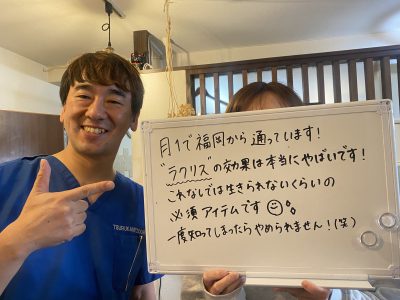 月1で福岡から通っています!
"ラクリス"の効果は本当にやばいです!
これなしでは生きられないくらいの
必須アイテムです
一度知ってしまったらやめられません!(笑)